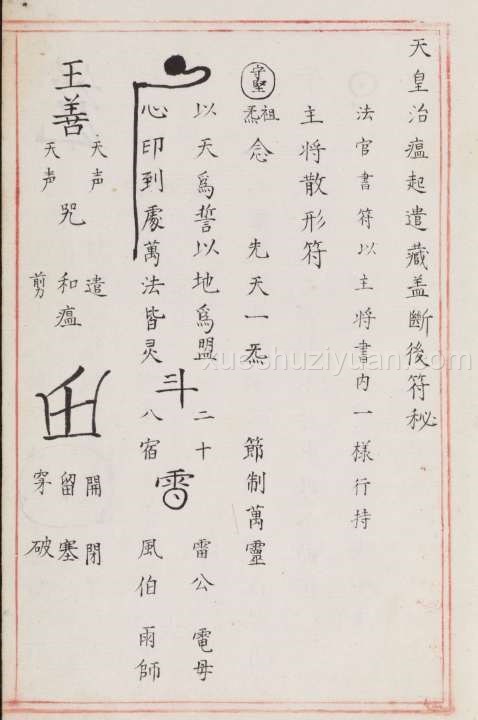 天皇治瘟起遣藏盖斷後符秘
法官書符以主將書內一樣行持
主將散形符
守堅
祖炁
念 先天一炁 節制萬靈
以天爲誓以地爲盟 二十 雷公 電母
心印到處萬法皆灵 八宿 風伯 雨師
斗
王善
天声
天声
咒
遣
和瘟
剪
開 閉
留塞
穿 破
xueshuziyuan.com